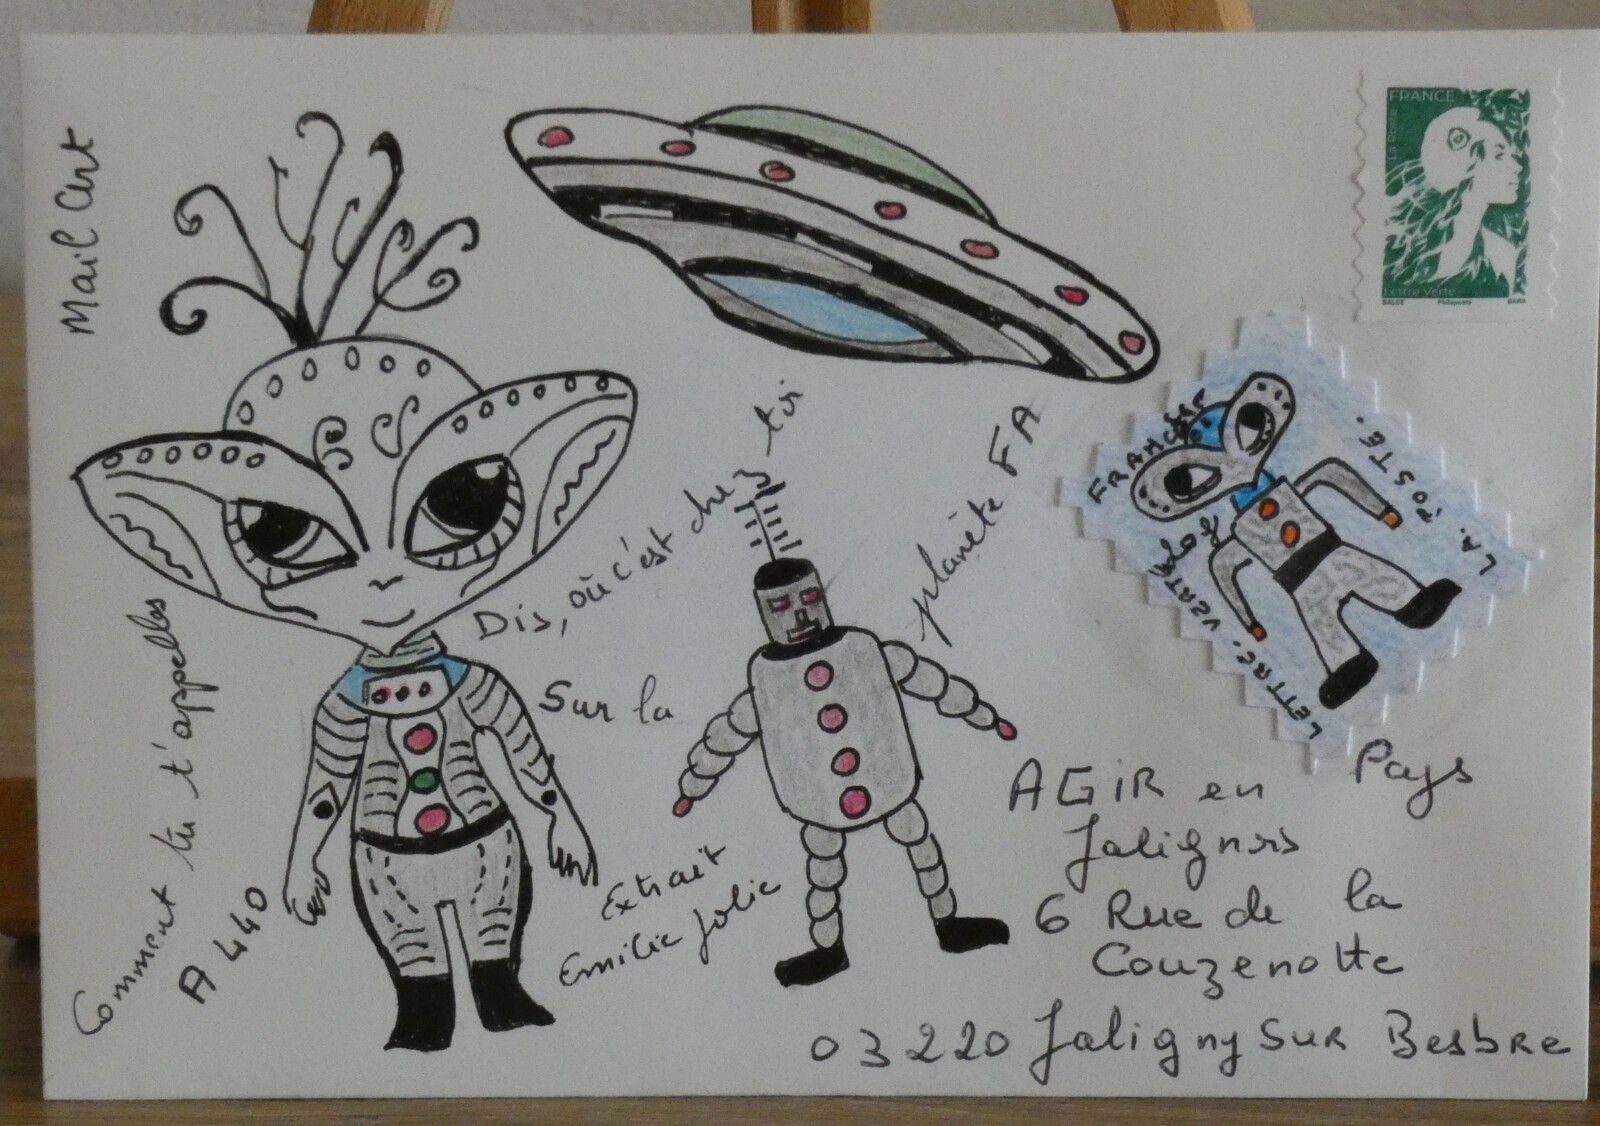 Mail Art
FRANCE
La Poste
Lettre Verte
Philaposte
FRANCAISE
LA. POSTE.
LETTRE.
Comment tu t'appelles
A 440
Dis, où c'est chez toi
Sur la
planète FA
Extrait
Emilie Jolie
AGIR en Pays
Jalignois
6 Rue de la
Couzenotte
03220 Jaligny Sur Besbre